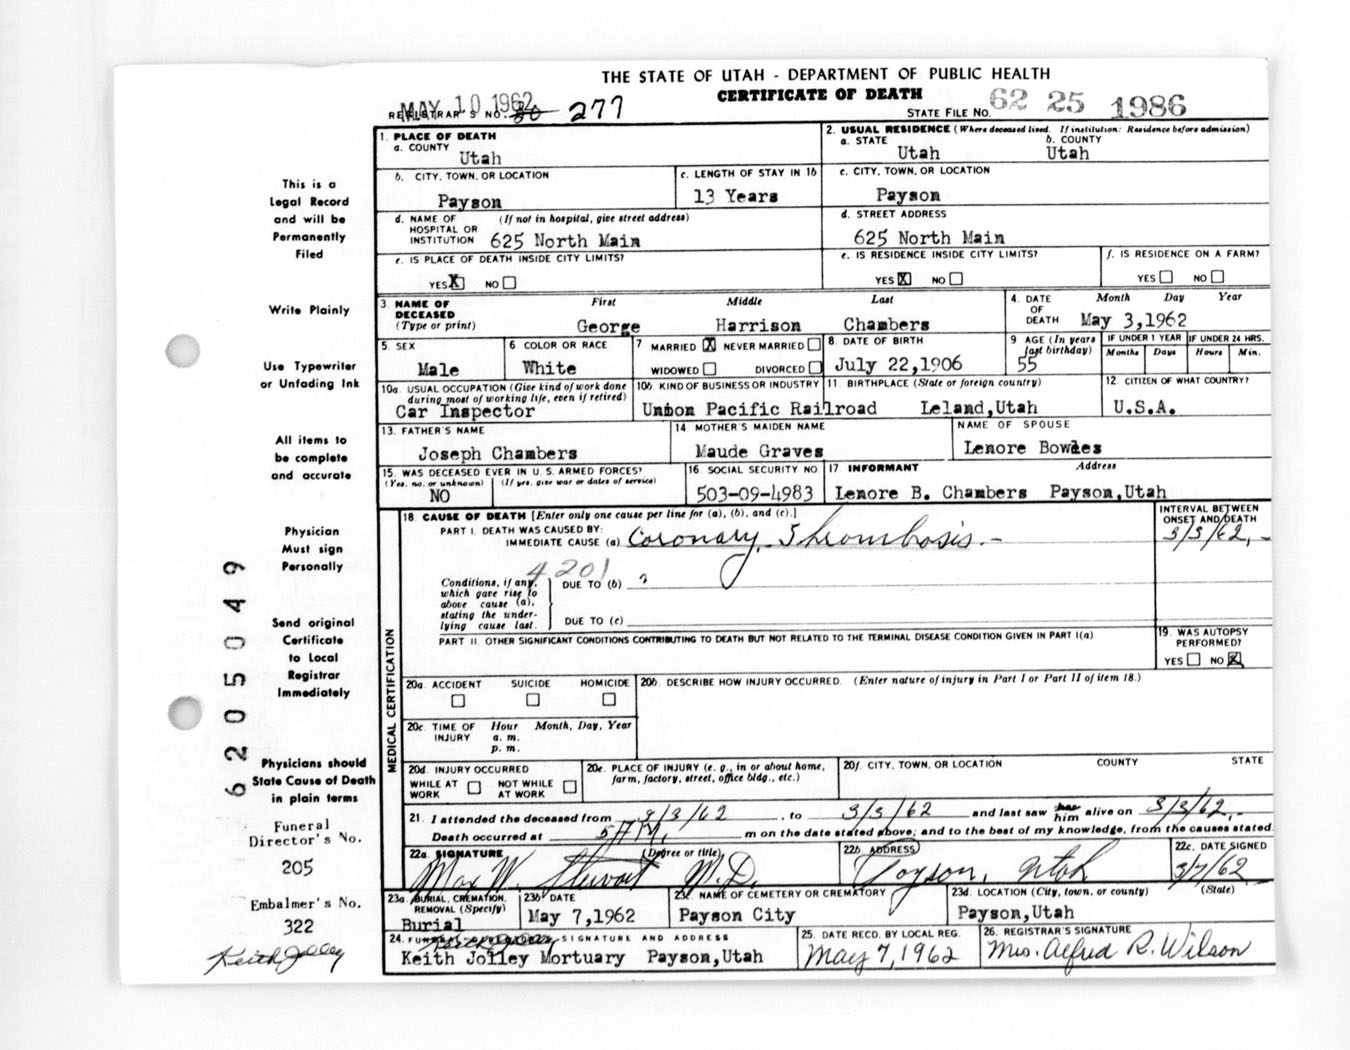 THE STATE OF UTAH - DEPARTMENT OF PUBLIC HEALTH
CERTIFICATE OF DEATH
MAY 10 1962
REGISTRAR'S NO. 80 277
STATE FILE NO. 62 25 1986
1. PLACE OF DEATH
a. COUNTY
Utah
2. USUAL RESIDENCE (Where deceased lived. If institution: Residence before admission)
a. STATE b. COUNTY
Utah Utah
b. CITY, TOWN, OR LOCATION
Payson
c. LENGTH OF STAY IN 1b
13 Years
c. CITY, TOWN, OR LOCATION
Payson
d. NAME OF (If not in hospital, give street address)
HOSPITAL OR
INSTITUTION 625 North Main
d. STREET ADDRESS
625 North Main
e. IS PLACE OF DEATH INSIDE CITY LIMITS?
YES X NO
e. IS RESIDENCE INSIDE CITY LIMITS?
YES X NO
f. IS RESIDENCE ON A FARM?
YES NO
3. NAME OF DECEASED (Type or print)
First Middle Last
George Harrison Chambers
4. DATE OF DEATH
Month Day Year
May 3,1962
5. SEX
Male
6 COLOR OR RACE
White
7 MARRIED X NEVER MARRIED
WIDOWED DIVORCED
8. DATE OF BIRTH
July 22,1906
9 AGE (In years last birthday)
55
IF UNDER 1 YEAR IF UNDER 24 HRS.
Months Days Hours Min.
10a. USUAL OCCUPATION (Give kind of work done
during most of working life, even if retired)
Car Inspector
10b. KIND OF BUSINESS OR INDUSTRY
Union Pacific Railroad
11. BIRTHPLACE (State or foreign country)
Leland,Utah
12. CITIZEN OF WHAT COUNTRY?
U.S.A.
13. FATHER'S NAME
Joseph Chambers
14 MOTHER'S MAIDEN NAME
Maude Graves
NAME OF SPOUSE
Lenore Bowles
15. WAS DECEASED EVER IN U. S. ARMED FORCES?
(Yes, no, or unknown) (If yes, give war or dates of service)
NO
16. SOCIAL SECURITY NO.
503-09-4983
17. INFORMANT Address
Lenore B. Chambers Payson,Utah
MEDICAL CERTIFICATION
18. CAUSE OF DEATH [Enter only one cause per line for (a), (b), and (c).]
INTERVAL BETWEEN
ONSET AND DEATH
PART I. DEATH WAS CAUSED BY:
IMMEDIATE CAUSE (a) Coronary Thrombosis. -
4201
Conditions, if any,
which gave rise to
above cause (a),
stating the under-
lying cause last.
DUE TO (b) ?
DUE TO (c)
PART II. OTHER SIGNIFICANT CONDITIONS CONTRIBUTING TO DEATH BUT NOT RELATED TO THE TERMINAL DISEASE CONDITION GIVEN IN PART I(a)
19. WAS AUTOPSY
PERFORMED?
YES NO X
20a. ACCIDENT SUICIDE HOMICIDE
20b. DESCRIBE HOW INJURY OCCURRED. (Enter nature of injury in Part I or Part II of item 18.)
20c. TIME OF INJURY
Hour Month, Day, Year
a. m.
p. m.
20d. INJURY OCCURRED
WHILE AT WORK NOT WHILE AT WORK
20e. PLACE OF INJURY (e. g., in or about home,
farm, factory, street, office bldg., etc.)
20f. CITY, TOWN, OR LOCATION COUNTY STATE
21. I attended the deceased from , to and last saw her him alive on
Death occurred at m on the date stated above; and to the best of my knowledge, from the causes stated.
22a. SIGNATURE (Degree or title)
Max W. Stewart M.D.
22b. ADDRESS
Payson, Utah
22c. DATE SIGNED
23a. BURIAL, CREMATION, REMOVAL (Specify)
Burial
23b. DATE
May 7,1962
23c. NAME OF CEMETERY OR CREMATORY
Payson City
23d. LOCATION (City, town, or county) (State)
Payson,Utah
24. SIGNATURE AND ADDRESS
Keith Jolley Mortuary Payson,Utah
25. DATE RECD. BY LOCAL REG.
May 7, 1962
26. REGISTRAR'S SIGNATURE
Mrs. Alfred R. Wilson
This is a
Legal Record
and will be
Permanently
Filed
Write Plainly
Use Typewriter
or Unfading Ink
All items to
be complete
and accurate
Physician
Must sign
Personally
Send original
Certificate
to Local
Registrar
Immediately
Physicians should
State Cause of Death
in plain terms
6205049
Funeral
Director's No.
205
Embalmer's No.
322
Keith Jolley